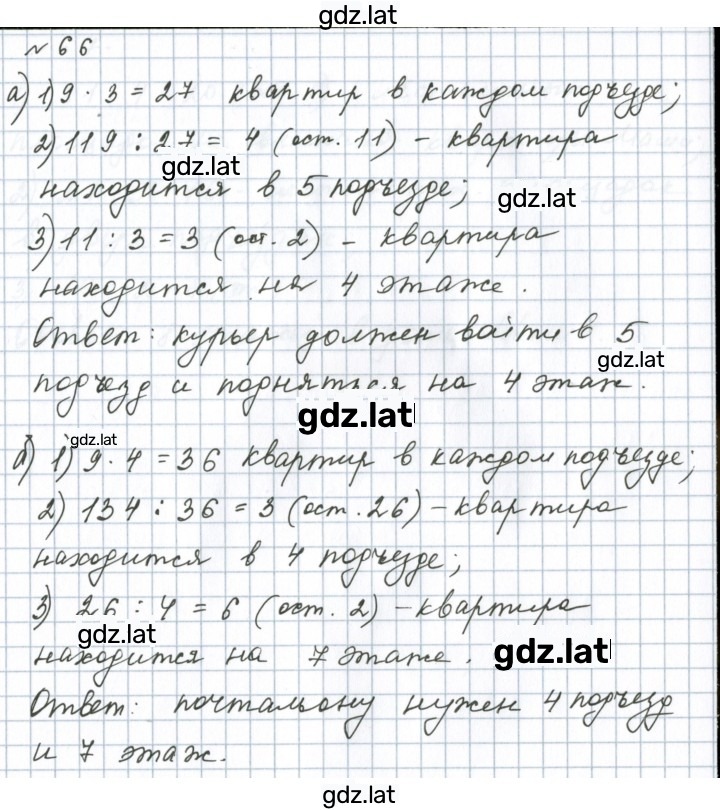 gdz.lat
№ 66
а) 1) 9 · 3 = 27 квартир в каждом подъезде;
2) 119 : 27 = 4 (ост. 11) – квартира
gdz.lat
находится в 5 подъезде; gdz.lat
3) 11 : 3 = 3 (ост. 2) – квартира
находится на 4 этаже.
Ответ: курьер должен войти в 5
gdz.lat
подъезд и подняться на 4 этаж.
gdz.lat
gdz.lat
б) 1) 9 · 4 = 36 квартир в каждом подъезде;
2) 134 : 36 = 3 (ост. 26) – квартира
находится в 4 подъезде;
3) 26 : 4 = 6 (ост. 2) – квартира
gdz.lat
находится на 7 этаже. gdz.lat
Ответ: почтальону нужен 4 подъезд
и 7 этаж.
gdz.lat